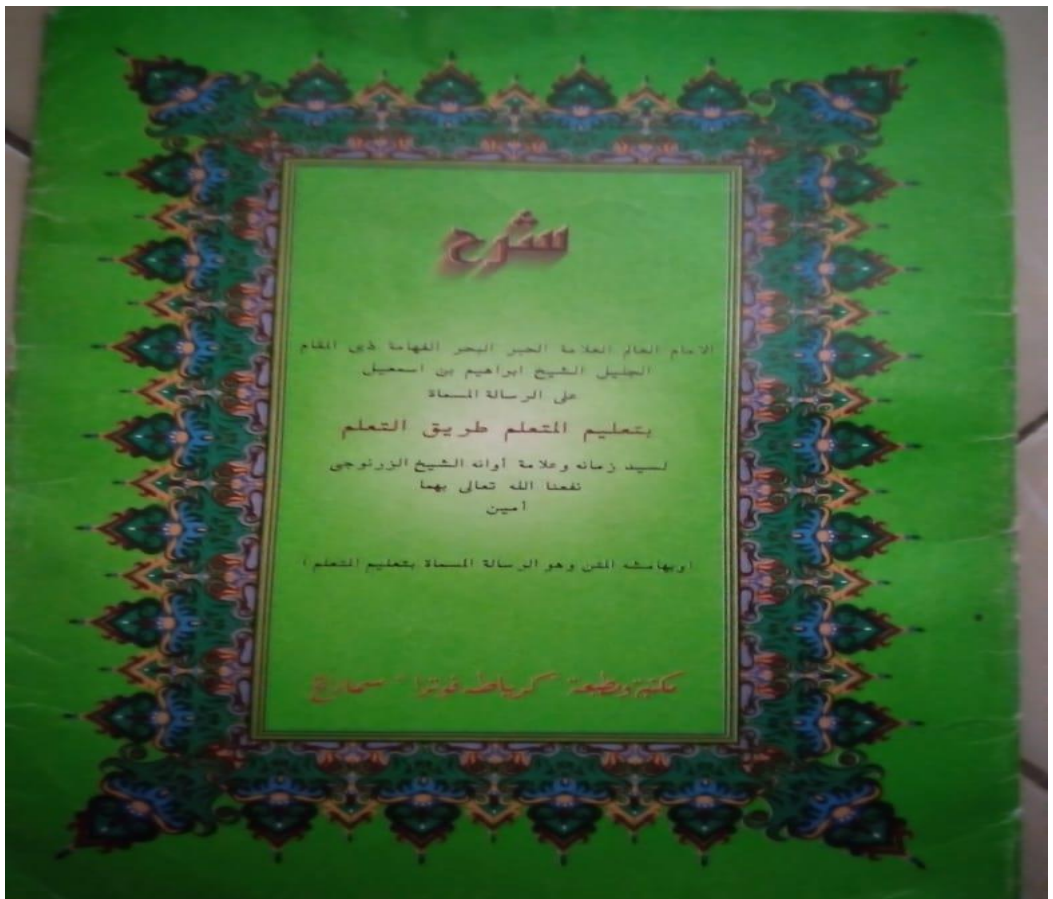 شرح
الامام العالم العلامة الحبر البحر الفهامة ذى المقام
الجليل الشيخ ابراهيم بن اسمعيل
على الرسالة المسماة
بتعليم المتعلم طريق التعلم
لسيد زمانه وعلامة أوانه الشيخ الزرنوجى
نفعنا الله تعالى بهما
أمين
(وبهامشه المتن وهو الرسالة المسماة بتعليم المتعلم)
مكتبة ومطبعة "كرياطه فوترا" سمارڠ